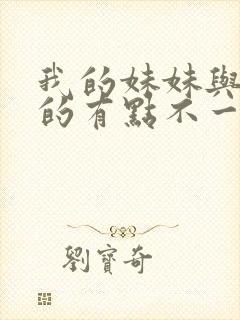 我的妹妹與
的有點不一
劉寶奇